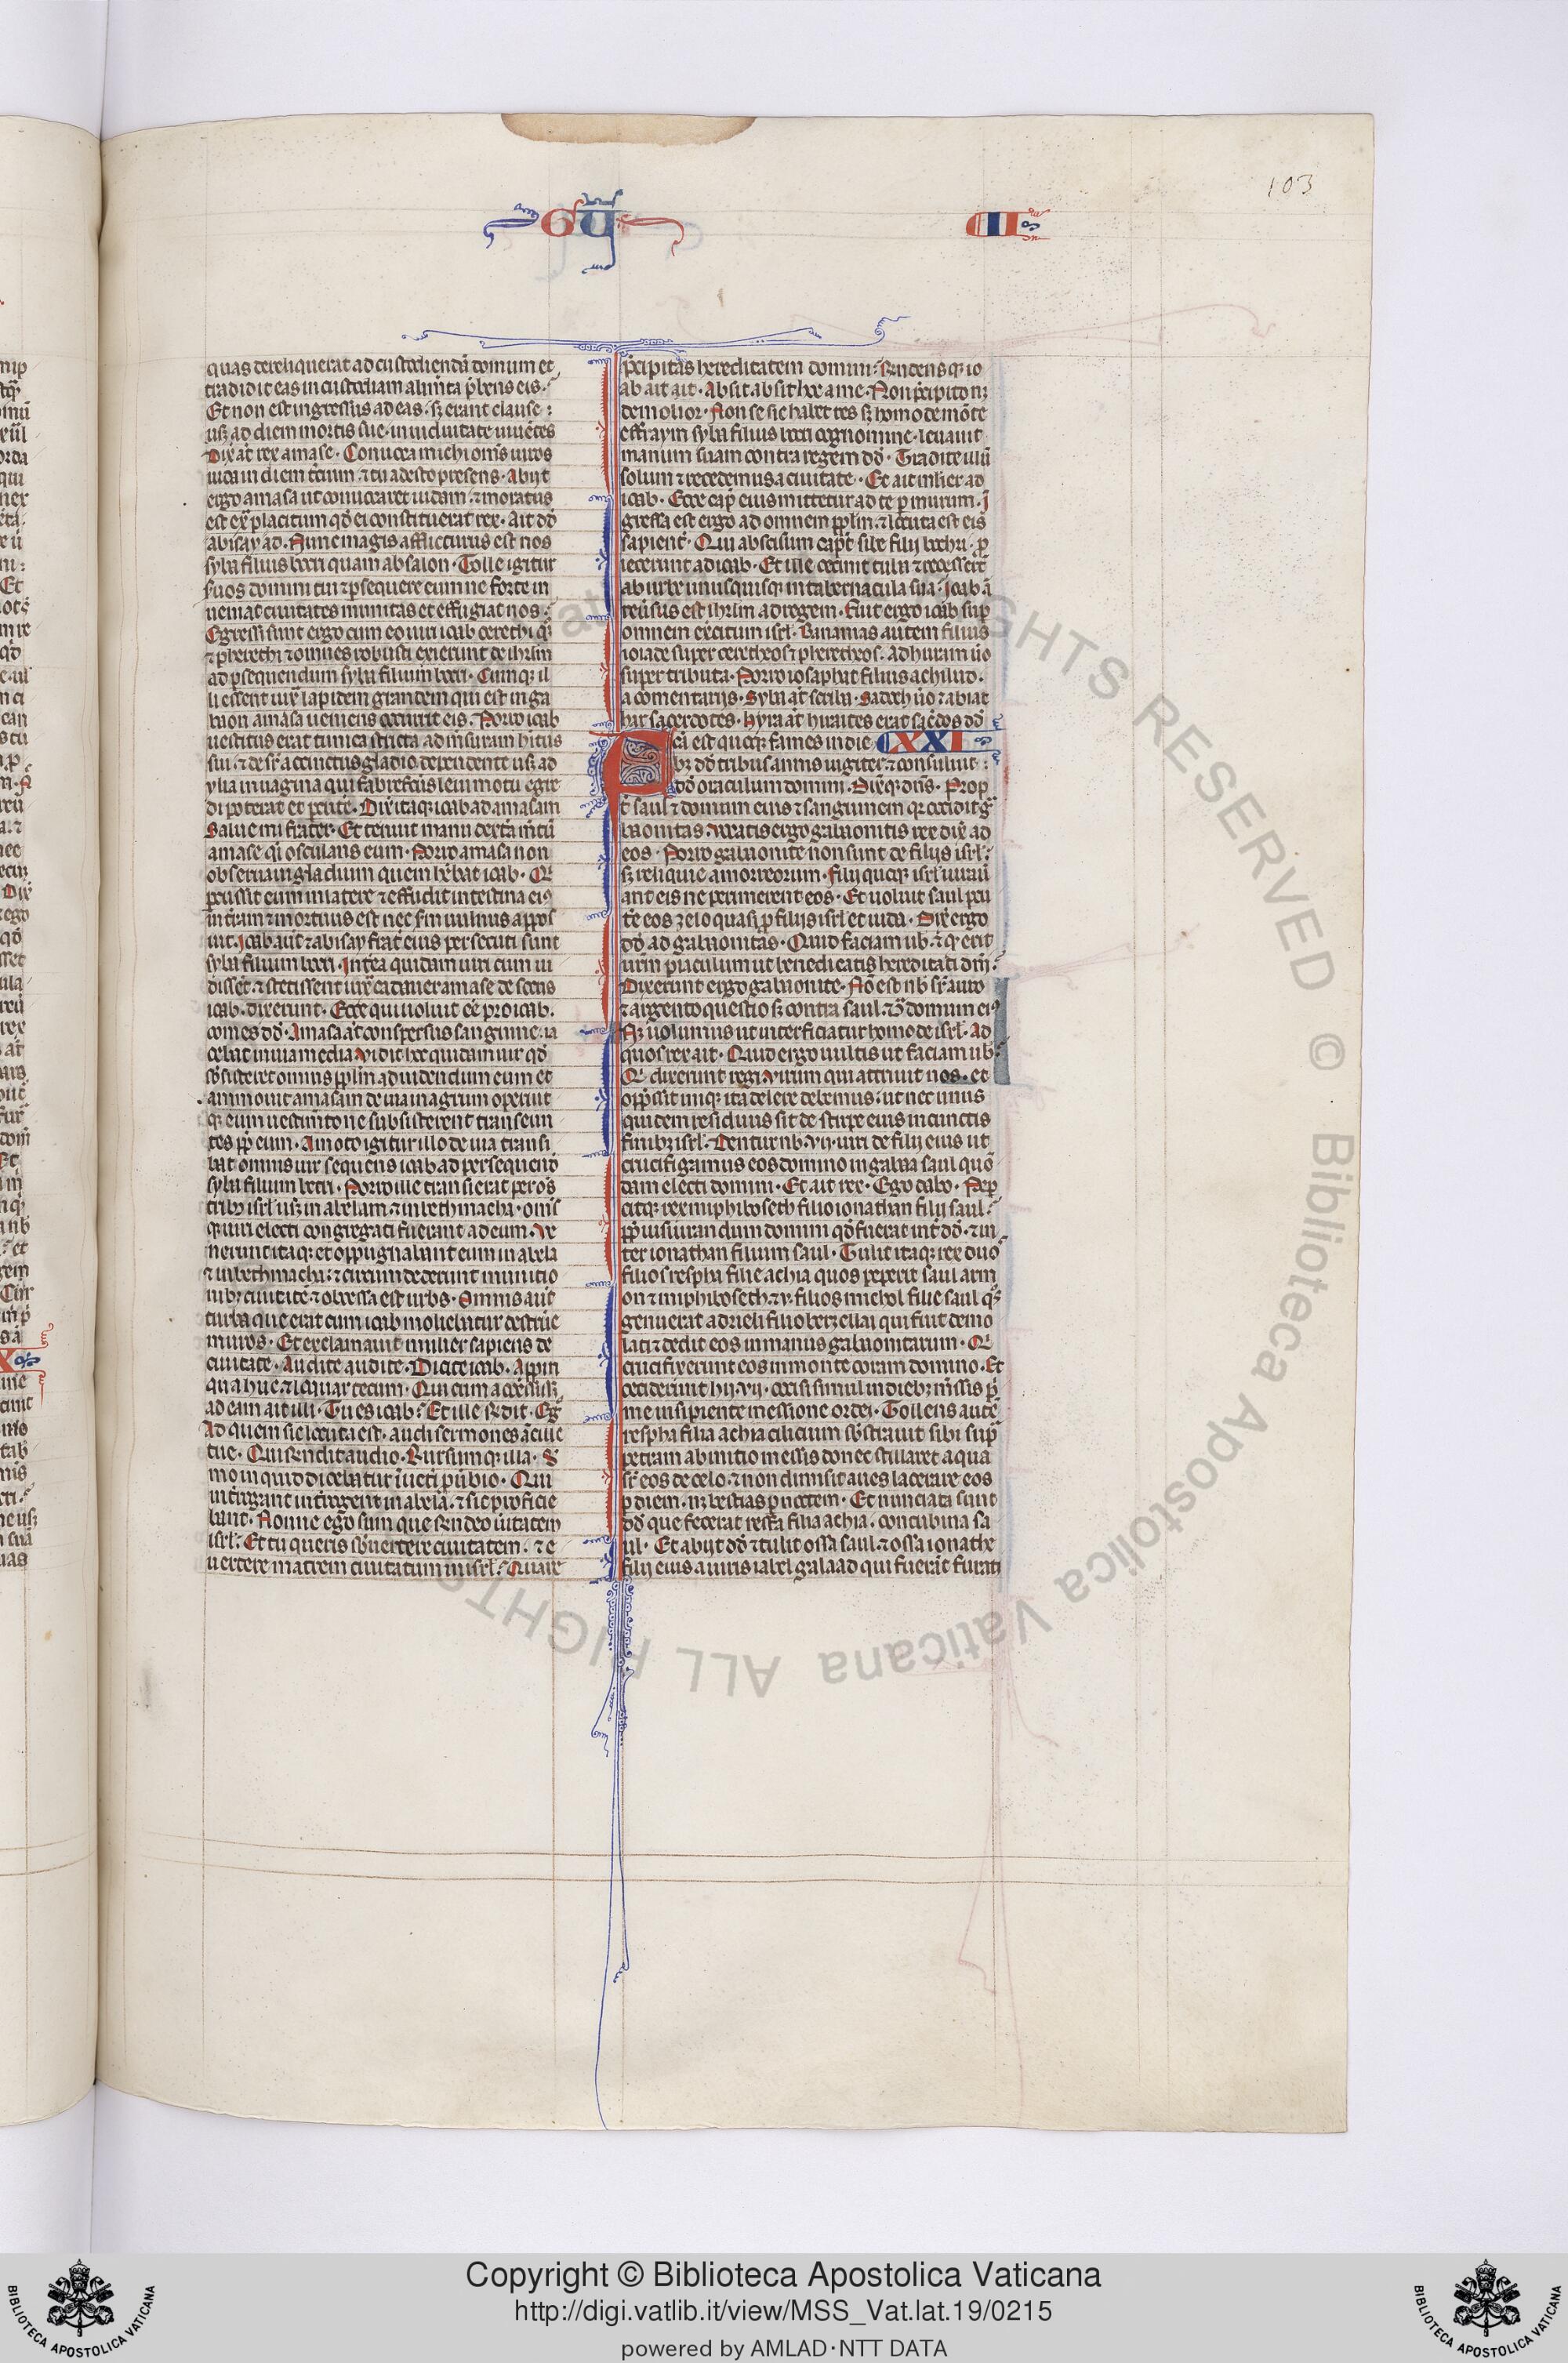 103
GŪ
II
quas dereliquerat ad custodiendū domum et
tradidit eas in custodiam alimēta p̄bens eis.
Et non est ingressus ad eas. sꝫ erant clause:
usꝫ ad diem mortis sue. in uiduitate uiuētes
Dix̄ at̄ rex amase. Conuoca michi om̄s uiros
iuda in diem t̄cium. ⁊ tu adesto presens. Abiit
ergo amasa ut conuocaret iudam. ⁊ moratus
est ex̄ placitum qd̄ ei constituerat rex. Ait dd̄
abisay ad. Nunc magis afflicturus est nos
syba filius bocri quam absalon. Tolle igitur
suos domini tui ⁊ psequere eum ne forte in
ueniat ciuitates munitas et effugiat nos.
Egressi sunt ergo cum eo uiri ioab cerethi q̄
⁊ pherethi ⁊ omnes robusti exierunt de ihrlm
ad psequendum syba filium bocri. Cumqꝫ il
li essent iux̄ lapidem grandem qui est in ga
baon amasa ueniens occurrit eis. Porro ioab
uestitus erat tunica stricta ad m̄suram hitus
sui. ⁊ desr̄ accinctus gladio dependente usꝫ ad
ylia in uagina qui fabrefctūs leui motu egre
di poterat et pcute᷑. Dix̄ itaqꝫ ioab ad amasam
Salue mi frater. Et tenuit manu dext̄a m̄tū
amase q̄i osculans eum. Porro amasa non
obseruauit gladium quem hēbat ioab. Qi
pcussit eum in latere ⁊ effudit intestina eiꝰ
in t̄ram ⁊ mortuus est nec scd̄m uulnus appos
uit. Ioab aut̄ ⁊ abisay frat̄ eius persecuti sunt
syba filium bocri. Int̄ea quidam uiri cum ui
dissēt. ⁊ stetissent iux̄ cadauer amase de sociis
ioab. dixerunt. Ecce qui uoluit eē pro ioab.
comes dd̄. Amasa at̄ conspersus sanguine. ia
cebat in uia media. Vidit hoc quidam uir qd̄
sb̄sisteret omnis ppl̄s ad uidendum eum et
ammouit amasam de uia in agrum operuit
qꝫ eum uestim̄to ne subsisterent transeun
tes pp̄ eum. Amoto igitur illo de uia transi
bat omnis uir sequens ioab ad persequend̄
syba filium bocri. Porro ille transierat per om̄s
tribꝰ isrl̄ usꝫ in abelam. ⁊ in bethmacha. om̄s
qꝫ uiri electi congregati fuerant ad eum. Ve
nerunt itaqꝫ et oppugnabant eum in abela
⁊ in bethmacha: ⁊ circumdederunt munitio
nibꝫ ciuitatē ⁊ obsessa est urbs. Omnis aut̄
turba que erat cum ioab moliebatur destrue᷑
muros. Et exclamauit mulier sapiens de
ciuitate. Audite audite. Dicite ioab. Appin
qua huc ⁊ loquar tecum. Qui cum accessissꝫ
ad eam ait illi. Tu es ioab? Et ille rn̄dit. Eg̊
Ad quem sic locuta est. audi sermones ancille
tue. Qui rn̄dit audio. Rursumqꝫ illa. S̄
mo inquid dicebatur i ueti puerbio. Qui
int̄rogant int̄rogent in abela. ⁊ sic proficie
bant. Nonne ego sum que rn̄deo ueritatem
isrl̄. Et tu queris sb̄uertere ciuitatem. ⁊ e
uertere matrem ciuitatum in isrl̄? Quare
p̄cipitas hereditatem domini? Rn̄densqꝫ io
ab ait ait. Absit absit hoc a me. Non p̄cipito nꝫ
demolior. Non se sic habet res sꝫ homo de mōte
effraym syba filius bocri cognomine. leuauit
manum suam contra regem dd̄. Tradite illū
solum ⁊ recedemus a ciuitate. Et ait mlier ad
ioab. Ecce cap̄ eius mittetur ad te p murum. I
gressa est ergo ad omnem pplm̄. ⁊ locuta est eis
sapient̄. Qui abscisum capt̄ sibe filij bochri. p
iecerunt ad ioab. Et ille cecinit tuba ⁊ recesserūt
ab urbe unusquisqꝫ in tabernacula sua. Ioab at̄
reu̇sus est ihrlm ad regem. Fuit ergo ioab sup
omnem ex̄citum isrl̄. Bananias autem filius
ioiade super ceretheos ⁊ pheretheos. Adhuram u̇o
super tributa. Porro iosaphat filius achilud.
a comentarijs. Syba at̄ scriba. Sadoch u̇o ⁊ abiat
har sacerdotes. Hyra at̄ hiraites erat sac̄dos dd̄
XXI
Fcā est quoqꝫ fames in die
bꝫ dd̄ tribus annis iugiter ⁊ consuluit
dd̄ oraculum domini. Dixitqꝫ dn̄s. Prop
t̄ saul ⁊ domum eius ⁊ sanguinem qꝫ occidit ga
baonitas. Vocatis ergo gabaonitis rex dix̄ ad
eos. Porro gabaonite non sunt de filijs isrl̄.
sꝫ reliquie amorreorum. Filij quoqꝫ isrl̄ iurauē
ant eis ne perimerent eos. Et uoluit saul pcu
te᷑ eos zelo quasi p filijs isrl̄ et iuda. Dix̄ ergo
dd̄ ad gabaonitas. Quid faciam uob̄. ⁊ q̊ erit
ur̄m piaculum ut benedicatis hereditati dn̄i.
Dixerunt ergo gabaonite. Nō est nob̄ sr̄ auro
⁊ argento questio sꝫ contra saul ⁊ ɔ̄ domum eiꝰ
Nꝫ uolumus ut interficiatur homo de isrl̄. Ad
quos rex ait. Quid ergo uultis ut faciam uob̄.
Qi dixerunt regi. Virum qui attriuit nos. et
opp̄ssit iniqꝫ ita delere debemus: ut nec unus
quidem residuus sit de stirpe eius in cunctis
finibꝫ isrl̄. Dentur nob̄. vij. uiri de filij eius ut
crucifigamus eos domino in gabaa saul quō
dam electi domini. Et ait rex. Ego dabo. Pep
citqꝫ rex miphiboseth filio ionathan filij saul.
pp̄ iusiurandum domini qd̄ fuerat int̄ dd̄. ⁊ in
ter ionathan filium saul. Tulit itaqꝫ rex duo
filios respha filie achia quos peperit saul arm
on ⁊ miphiboseth. ⁊ v. filios michol filie saul qͦs
genuerat adrieli filio berzellai qui fuit demo
lati ⁊ dedit eos in manus gabaonitarum. Qi
crucifixerunt eos in monte coram domino. Et
ceciderunt hij vij. occisi simul in diebꝫ messis p̄
me insipiente messione ordei. Tollens autē
respha filia achia cilicium sb̄strauit sibi sup
petram ab initio messis donec stillaret aqua
sr̄ eos de celo. ⁊ non dimisit aues lacerare eos
p diem. nꝫ bestias p noctem. Et nunciata sunt
dd̄ que fecerat resfa filia achia. concubina sa
ul. Et abijt dd̄ ⁊ tulit ossa saul ⁊ ossa ionathe
filij eius a uiris iabel galaad qui fuerāt furati
Copyright © Biblioteca Apostolica Vaticana
http://digi.vatlib.it/view/MSS_Vat.lat.19/0215
powered by AMLAD·NTT DATA
BIBLIOTECA APOSTOLICA VATICANA
BIBLIOTECA APOSTOLICA VATICANA
ALL RIGHTS RESERVED © Biblioteca Apostolica Vaticana